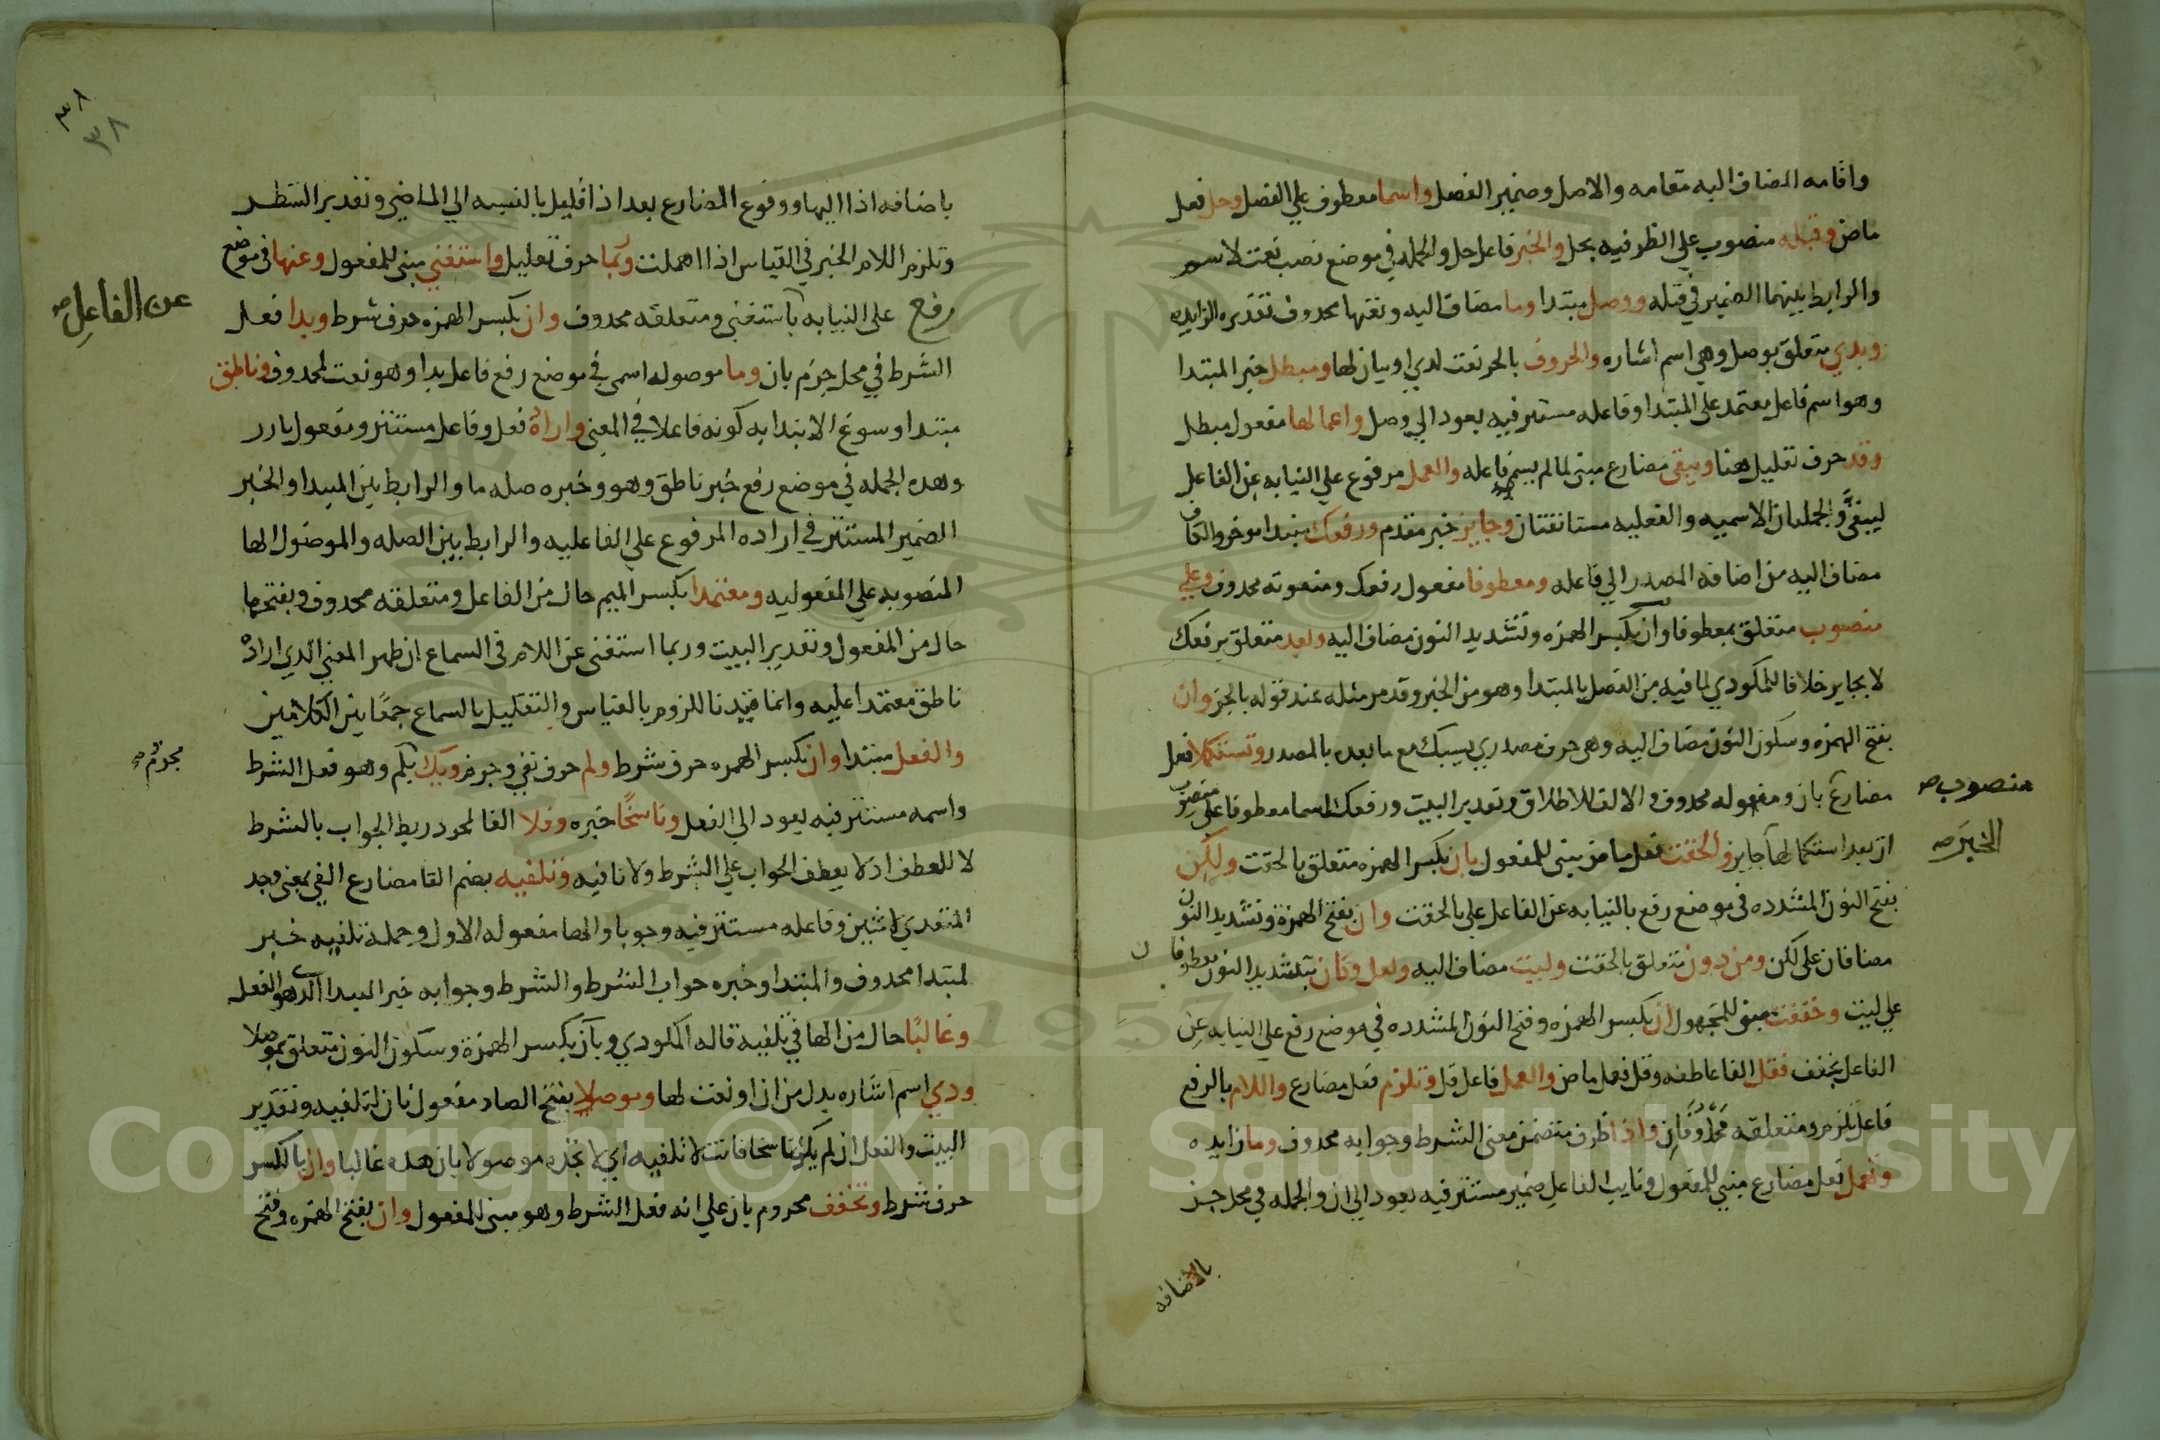 واقامه المضاف اليه مقامه والاصل وضمير الفصل واسما معطوف علي الفصل وحل فعل
ماض وقبله منصوب علي الظرفيه بحل والخبر فاعل حل والجمله في موضع نصب نعت لاسم
والرابط بينهما الضمير في قبله ووصل مبتدا وما مضاف اليه ونعتها محدوف تقديره الزايده
وبدي متعلق بوصل وهي اسم اشاره والحروف بالجر نعت لدي او بيان لها ومبطل خبر المبتدا
وهو اسم فاعل يعتمد علي المبتدا وفاعله مستتر فيه يعود الي وصل واعمالها مفعول مبطل
وقد حرف تقليل هنا ويبقي مضارع مبني لما لم يسم فاعله والعمل مرفوع علي النيابه عن الفاعل
ليبقي والجملتان الاسميه والفعليه مستانفتان وجايز خبر مقدم ورفعك مبتدا موخر والكاف
مضاف اليه من اضافه المصدر الي فاعله ومعطوفا مفعول رفعك ومنعوته محدوف وعلي
منصوب متعلق بمعطوفا وان بكسر الهمزه وتشديد النون مضاف اليه وبعد متعلق برفعك
لا بجايز خلافا للمكودي لما فيه من الفصل بالمبتدا وهو من الخبر وقد مر مثله عند قوله بالجر وان
بفتح الهمزه وسكون النون مضاف اليه وهي حرف مصدري يسبك مع ما بعده بالمصدر وتستكملا فعل
مضارع بان ومفعوله محدوف والالف للاطلاق وتقدير البيت ورفعك اسما معطوفا علي منصوب
منصوب صح
ان بعد استكمالها جايز والحقت فعل ماض مبني للمفعول بان بكسر الهمزه متعلق بالحقت ولكن
الخبر صح
بفتح النون المشدده في موضع رفع بالنيابه عن الفاعل علي بالحقت وان بفتح الهمزة وتشديد النون
مضافان علي لكن ومن دون متعلق بالحقت وليت مضاف اليه ولعل وكان بتشديد النون معطوفان
علي ليت وخففت مبني للمجهول ان بكسر الهمزه وفتح النون المشدده في موضع رفع علي النيابه عن
الفاعل بخفف فقل الفا عاطفه وقل فعل ماض والعمل فاعل قل وتلزم فعل مضارع واللام بالرفع
فاعل تلزم ومتعلقه محدوفان واذا ظرف متضمن معني الشرط وجوابه محدوف وما زايده
وتهمل فعل مضارع مبني للمفعول ونايب الفاعل ضمير مستتر فيه يعود الي ان والجمله في محل جر
بالاضافه
٣٨
٣٨
باضافه اذا اليها ووقوع المضارع بعد اذا قليل بالنسبه الي الماضي وتقدير الشطر
وتلزم اللام الخبر في القياس اذا اهملت وربما حرف تقليل واستغني مبني للمفعول وعنها في موضع
رفع علي النيابه باستغني ومتعلقه محدوف وان بكسر الهمزه حرف شرط وبدا فعل
عن الفاعل صح
الشرط في محل جزم بان وما موصوله اسمي في موضع رفع فاعل بدا وهو نعت لمحدوف وناطق
مبتدا وسوغ الابتدا به كونه فاعلا في المعني واراده فعل وفاعل مستتر ومفعول بارز
وهده الجمله في موضع رفع خبر ناطق وهو وخبره صله ما والرابط بين المبتدا والخبر
الضمير المستتر في اراده المرفوع علي الفاعليه والرابط بين الصله والموصول الها
المنصوبه علي المفعوليه ومعتمدا بكسر الميم حال من الفاعل ومتعلقه محدوف وبفتحها
حال من المفعول وتقدير البيت وربما استغني عن اللام في السماع ان ظهر المعني الذي اراده
ناطق معتمدا عليه وانما قيدنا اللزوم بالقياس والتقليل بالسماع جمعا بين الكلامين
والفعل مبتدا وان بكسر الهمزه حرف شرط ولم حرف نفي وجزم ويك بكم وهو فعل الشرط
مجزوم صح
واسمه مستتر فيه يعود الي الفعل وناسخا خبره وفلا الفا لمجرد ربط الجواب بالشرط
لا للعطف اذ لا يعطف الجواب علي الشرط ولا نافيه وتلفيه بضم التا مضارع الفي بمعني وجد
المتعدي لاثنين وفاعله مستتر فيه وجوبا والها مفعوله الاول وجملة تلفيه خبر
لمبتدا محدوف والمبتدا وخبره جواب الشرط والشرط وجوابه خبر المبتدا الذي هو الفعل
وغالبا حال من الها في تلفيه قاله المكودي وبان بكسر الهمزة وسكون النون متعلق بموصلا
ودي اسم اشاره بدل من ان او نعت لها وموصلا بفتح الصاد مفعول ثان لتلفيه وتقدير
البيت والفعل ان لم يكن ناسخا فانت لا تلفيه اي لا تجده موصولا بان هده غالبا وان بالكسر
حرف شرط وتخفف مجزوم بان علي انه فعل الشرط وهو مبني للمفعول وان بفتح الهمزه وفتح
Copyright © King Saud University
1957